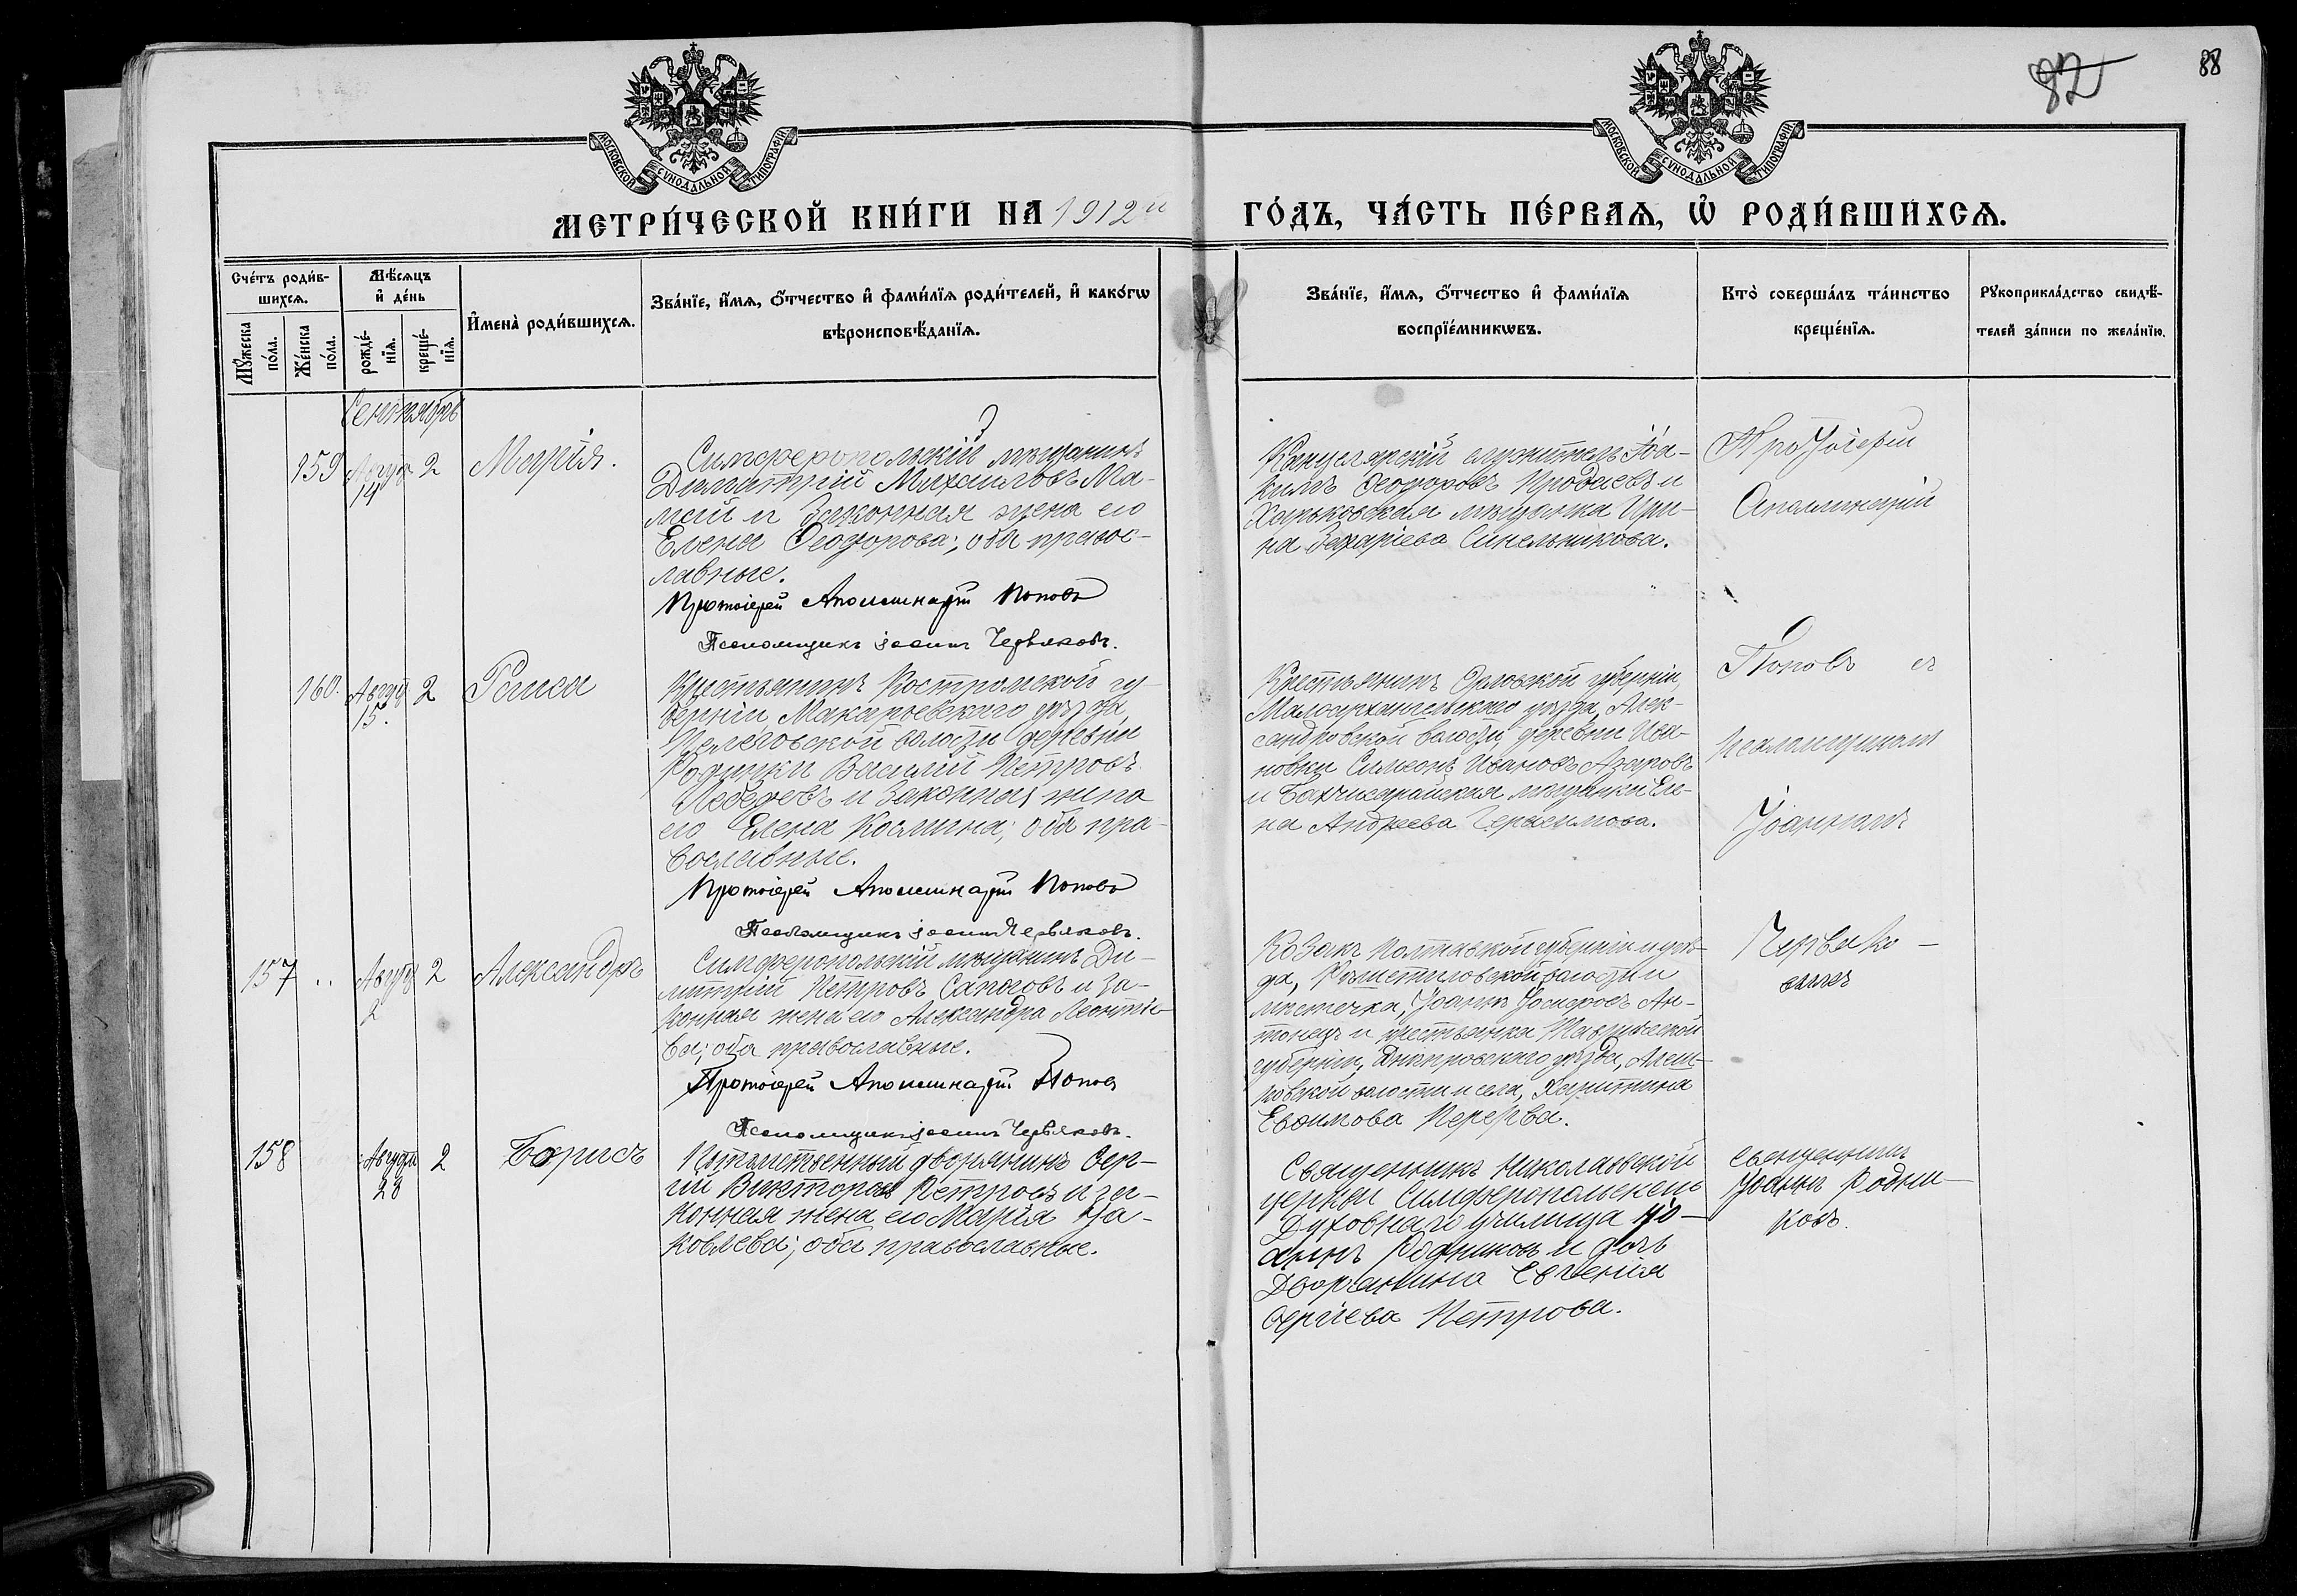 82
88
МОСКОВСКОЙ СѴНОДАЛЬНОЙ ТИПОГРАФІИ
МОСКОВСКОЙ СѴНОДАЛЬНОЙ ТИПОГРАФІИ
МЕТРИ́ЧЕСКОЙ КНИ́ГИ НА 1912й ГО́ДЪ, ЧА́СТЬ ПЕ́РВАѦ, Ѡ҆ РОДИ́ВШИХСѦ.
Сче́тъ роди́в-
шихсѧ.
Мꙋ́жеска
по́ла.
Же́нска
по́ла.
Мѣ́сѧцъ
и҆ де́нь
рожде́-
нїѧ.
креще́-
нїѧ.
И҆мена̀ роди́вшихсѧ.
Зва́нїе, и҆́мѧ, ѻ҆́тчество и҆ фами́лїѧ роди́телей, и҆ како́гѡ
вѣроисповѣ́данїѧ.
Зва́нїе, и҆́мѧ, ѻ҆́тчество и҆ фами́лїѧ
воспрїе́мникѡвъ.
Кто̀ соверша́лъ та́инство
креще́нїѧ.
Рꙋкоприкла́дство свидѣ́-
телей за́писи по жела́нїю.
Сентябрь
159 Август 14 2 Марія.
Симферопольскій мѣщанинъ
Димитрій Михаиловъ Ма-
май и законная жена его
Елена Ѳеодорова; оба правос-
лавные.
Протоіерей Аполлинарій Поповъ
Псаломщикъ Іоаннъ Червяковъ.
Канцелярскій служитель Іоа-
кимъ Ѳеодоровъ и
Харьковская мѣщанка Ири-
на Захаріева Синельникова.
Протоіерей
Аполлинарій
160. Август 15. 2 Раиса
Крестьянинъ Костромской гу-
берніи, Макарьевскаго уѣзда,
волости деревни
Василій Петровъ
Лебедевъ и законная жена
его Елена Косьмина; оба пра-
вославные.
Протоіерей Аполлинарій Поповъ
Псаломщикъ Іоаннъ Червяковъ.
Крестьянинъ Орловской губерніи,
Малоархангельскаго уѣзда, Алек-
сандровской волости, деревни
Симеонъ Ивановъ Азаровъ
и Бахчисарайская мѣщанка Еле-
на Андреева
Поповъ съ
псаломщикомъ
Іоанномъ
157 .. Август 2 2 Александръ
Симферопольскій мѣщанинъ Ди-
митрій Петровъ Сапоговъ и за-
конная жена его Александра Леонтіе-
ва; оба православные.
Протоіерей Аполлинарій Попов
Псаломщикъ Іоаннъ Червяковъ.
Козакъ Полтавской губерніи и уѣз-
да, Рѣшетиловской волости и
мѣстечка, Іоаннъ Іосифовъ Ан-
тонецъ и крестьянка Таврической
губерніи, Днѣпровскаго уѣзда, Алеш-
ковской волости и села, Харитина
Евѳимова Перерва.
Червяко-
вымъ
158 Август 28 2 Борисъ
Потомственный дворянинъ Сер-
гій Викторовъ Петровъ и за-
конная жена его Марія Іа-
ковлева; оба православные.
Священникъ Николаевской
церкви Симферопольскаго
Духовнаго училища Іо-
аннъ Родниковъ и дочь
Дворянина Евгенія
Сергіева Петрова.
Священникъ
Іоаннъ Родни-
ковъ.